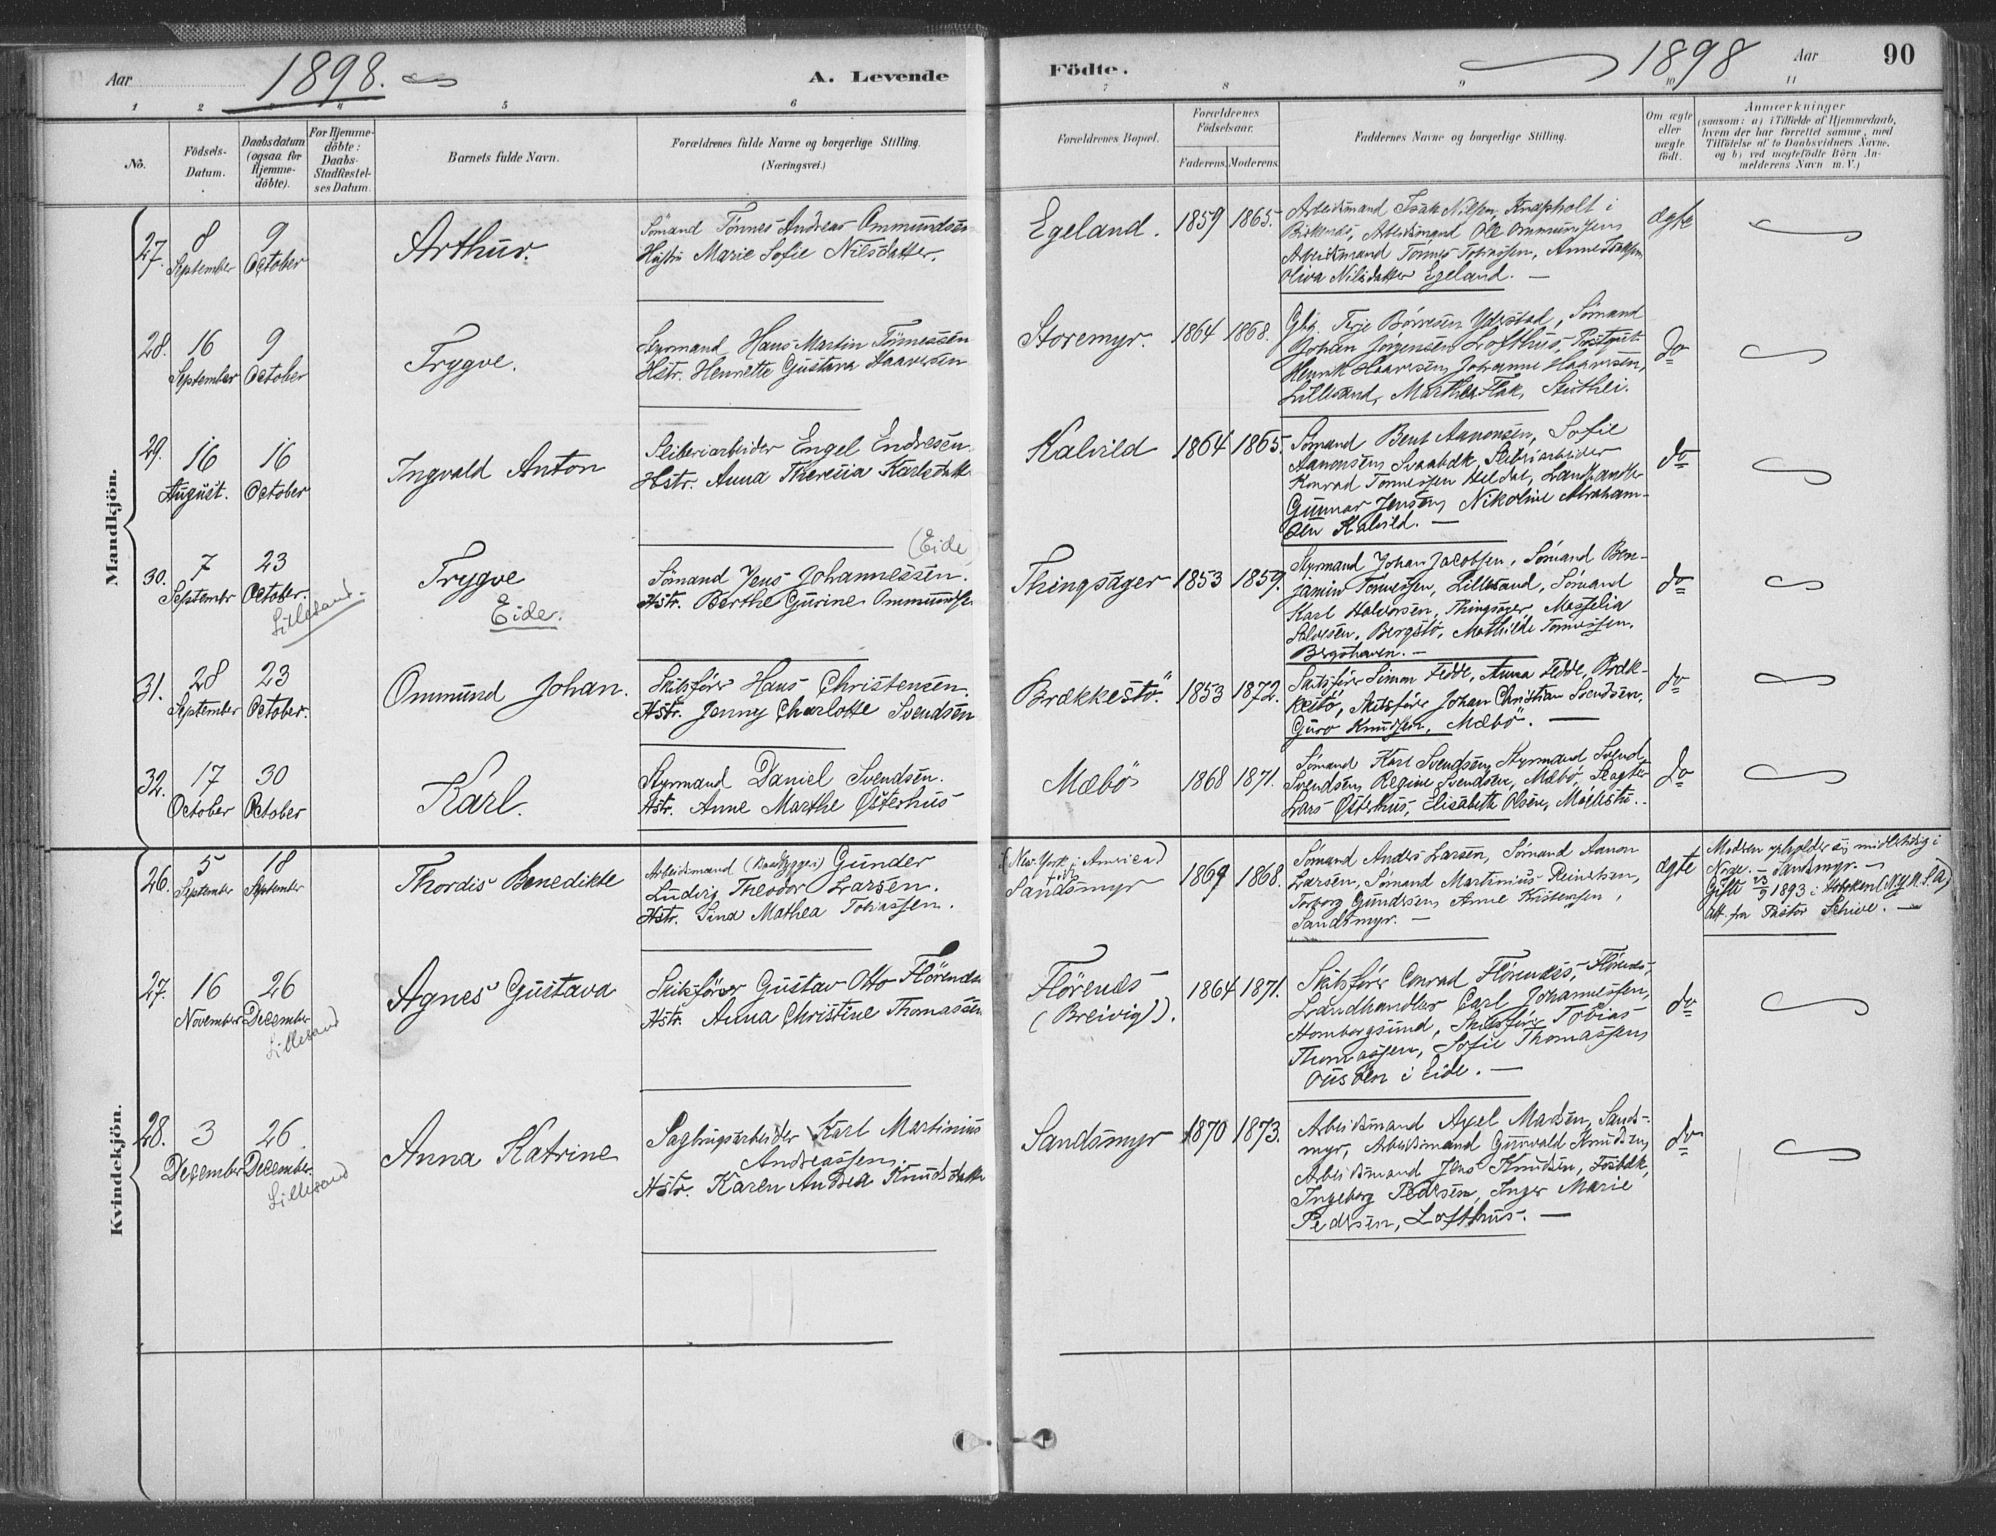 Aar 1898.
A. Levende
Födte.
1898 Aar
90
1 2 3 4 5 6 7 8 9 10 11
No.
Födsels-
Datum.
Daabsdatum
(ogsaa for
Hjemme-
döbte).
For Hjemme-
döbte:
Daabs-
Stadfæstel-
ses Datum.
Barnets fulde Navn.
Forældrenes fulde Navne og borgerlige Stilling.
(Næringsvei.)
Forældrenes Bopæl.
Forældrenes
Födselsaar.
Faderens. Moderens.
Faddernes Navne og borgerlige Stilling.
Om ægte
eller
uægte
födt.
Anmærkninger
(saasom: a) i Tilfælde af Hjemmedaab,
hvem der har forrettet samme, med
Tilföielse af to Daabsvidners Navne,
og b) ved uægtefödte Börn An-
melderens Navn m. V.)
Mandkjön.
27. 8 September 9 October
Arthur.
Sömand Tönnes Andreas Ommundsen
Hustru Marie Sofie Nilsdatter.
Egeland. 1859 1865.
Arbeidsmand Isak Nilsen, Knapholt i
Birkenes, Arbeidsmand Ole Ommundsen
Arbeidsmand Tönnes Tobiassen, Anne
Oliva Nilsdatter Egeland. —
ægte
28. 16 September 9 October
Trygve.
Styrmand Hans Martin Tönnessen
Hstr. Henriette Gustava Haaversen
Storemyr. 1864 1868.
Gbr. Terje Börresen Ydrestad, Sömand
Johan Jörgensen Lofthus,
Henrik Haaversen, Johanne Haaversen,
Lillesand, Marthea Flak,
do
29. 16 August. 16 October
Ingvald Anton
Sliberiarbeider Engel Endresen
Hstr. Anna Theresia Karlsdatter
Kalvild 1864 1865.
Sömand Bent Aanonsen, Sofie
Aanonsen Svaabek Sliberiarbeider
Konrad Tönnessen Heldal, Landhandler
Gunnar Jensen, Nikoline Abraham-
sen Kalvild. —
do
30. 7 September 23 October.
Lillesand.
Trygve
Eide.
(Eide)
Sömand Jens Johannessen.
Hstr. Berthe Gurine Ommundsen
Thingsager 1853 1859.
Styrmand Johan Jacobsen, Sömand Ben-
jamin Tönnessen, Lillesand, Sömand
Karl Halvorsen, Thingsager, Masselia
Salvesen, Bergstö, Mathilde Tönnessen,
Bergshaven. —
do
31. 28 September 23 October.
Ommund Johan.
Skibsförer Hans Christensen.
Hstr. Jenny Charlotte Svendsen
Brækkestö. 1853 1872.
Skibsförer Simon Fedde, Anna Fedde, Bræk-
kestö, Skibsförer Johan Christian Svendsen,
Guro Knudsen, Mæbö. —
do
32. 17 October 30 October
Karl.
Styrmand Daniel Svendsen.
Hstr. Anne Marthe Österhus
Mæbö 1868 1871.
Sömand Karl Svendsen, Styrmand Svend
Svendsen Regine Svendsen, Mæbö,
Lars Österhus, Elisabeth Olsen,
do
Kvindekjön.
26. 5 September 18 September
Thordis Benedikte
Arbeidsmand Gunder
Ludvig Theodor Larsen.
Hstr. Sina Mathea Tobiassen.
(New-York i America)
Sandsmyr 1869 1868.
Sömand Anders Larsen, Sömand Aanon
Larsen, Sömand Martinius Reinertsen,
Torborg Gundersen Anne Kristensen,
Sandsmyr. —
ægte
Moderen opholder sig midlertidig i
Norge. — Sandsmyr. —
Gifte 1893 i Hoboken (N.Y. U.S.A)
Att. fra Pastor Schive. —
27. 16 November 26 December
Lillesand
Agnes Gustava
Skibsförer Gustav Otto Flörenes
Hstr. Anna Christine Thomassen
Flörenes
(Breivig). 1864 1871.
Skibsförer Conrad Flörenes, Flörenes,
Landhandler Carl Johannessen,
Hombergsund, Skibsförer Tobias
Thomassen, Sofie Thomassen,
i Eide. —
do
28. 3 December 26 December.
Lillesand
Anna Katrine
Sagbrugsarbeider Karl Martinius
Andreassen.
Hstr. Karen Andrea Knudsdatter
Sandsmyr 1870 1873.
Arbeidsmand Axel Madsen, Sands-
myr, Arbeidsmand Gunvald Knudsen,
Arbeidsmand Jens Knudsen, Fosbæk,
Ingeborg Pedersen, Inger Marie
Pedersen, Lofthus. —
do